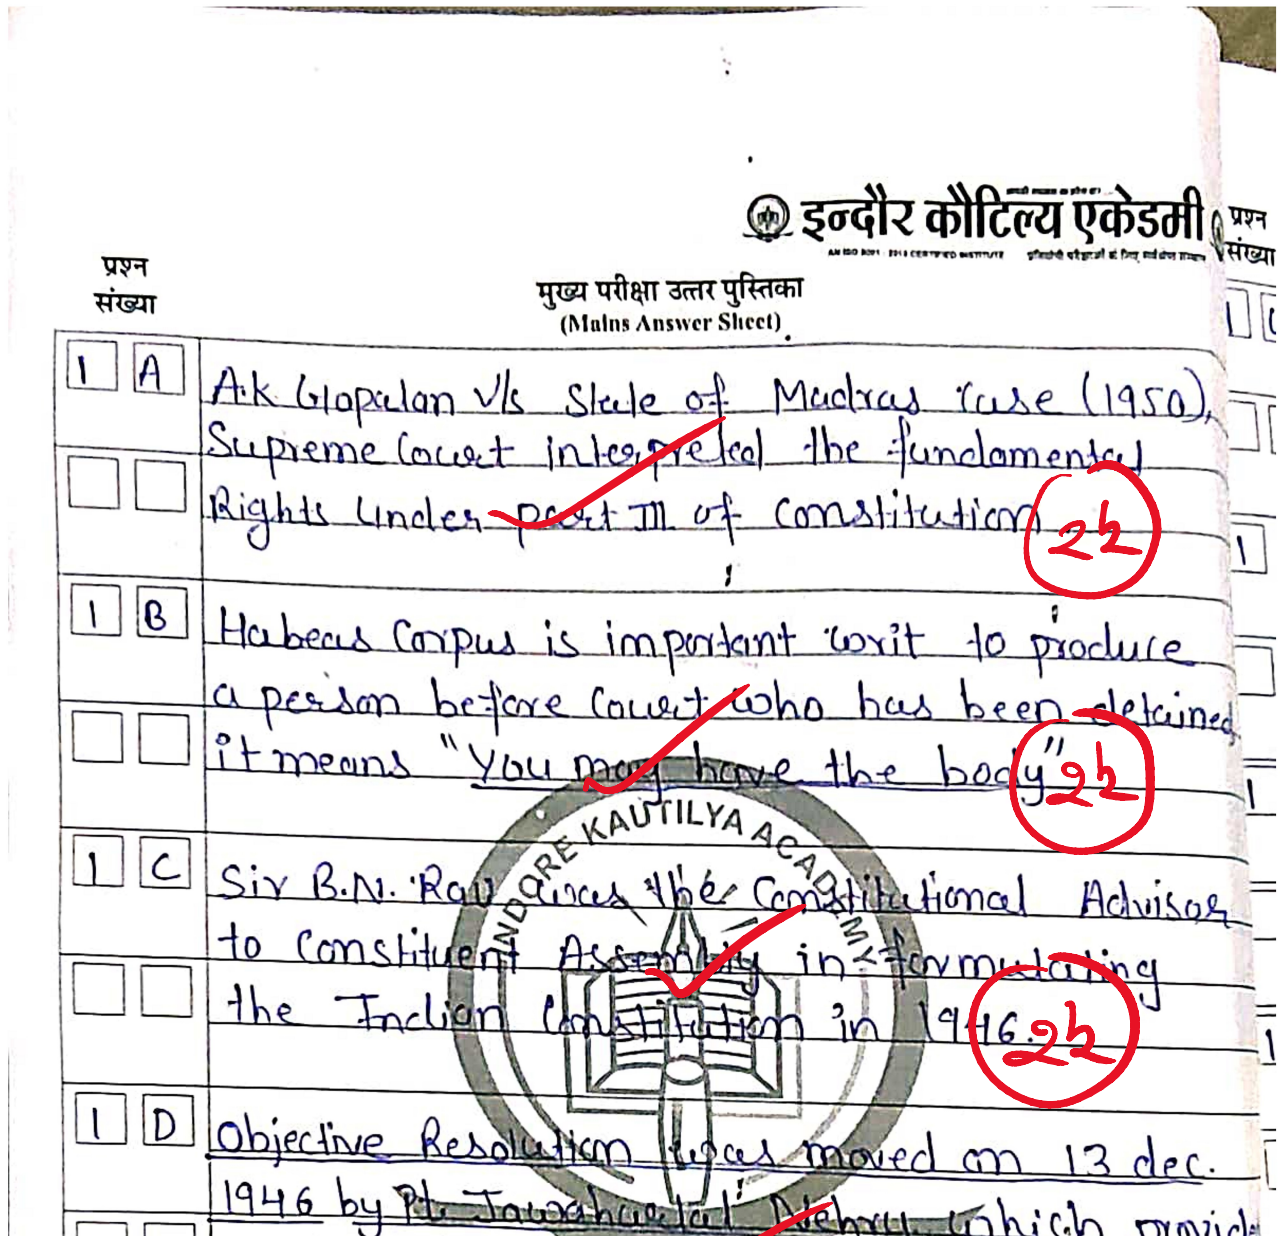 इन्दौर कौटिल्य एकेडमी
AN ISO 9001 : 2015 CERTIFIED INSTITUTE
प्रश्न
संख्या
प्रश्न
संख्या
मुख्य परीक्षा उत्तर पुस्तिका
(Mains Answer Sheet)
1 A
A.K Gopalan V/s State of Madras Case (1950),
Supreme Court interpreted the fundamental
Rights Under part III of Constitution
2½
1 B
Habeas Corpus is important writ to produce
a person before Court who has been detained
it means "You may have the body"
2½
INDORE KAUTILYA ACADEMY
1 C
Sir B.N. Rau was the Constitutional Advisor
to Constituent Assembly in formulating
the Indian Constitution in 1946.
2½
1 D
Objective Resolution was moved on 13 dec.
1946 by Pt. Jawaharlal Nehru which